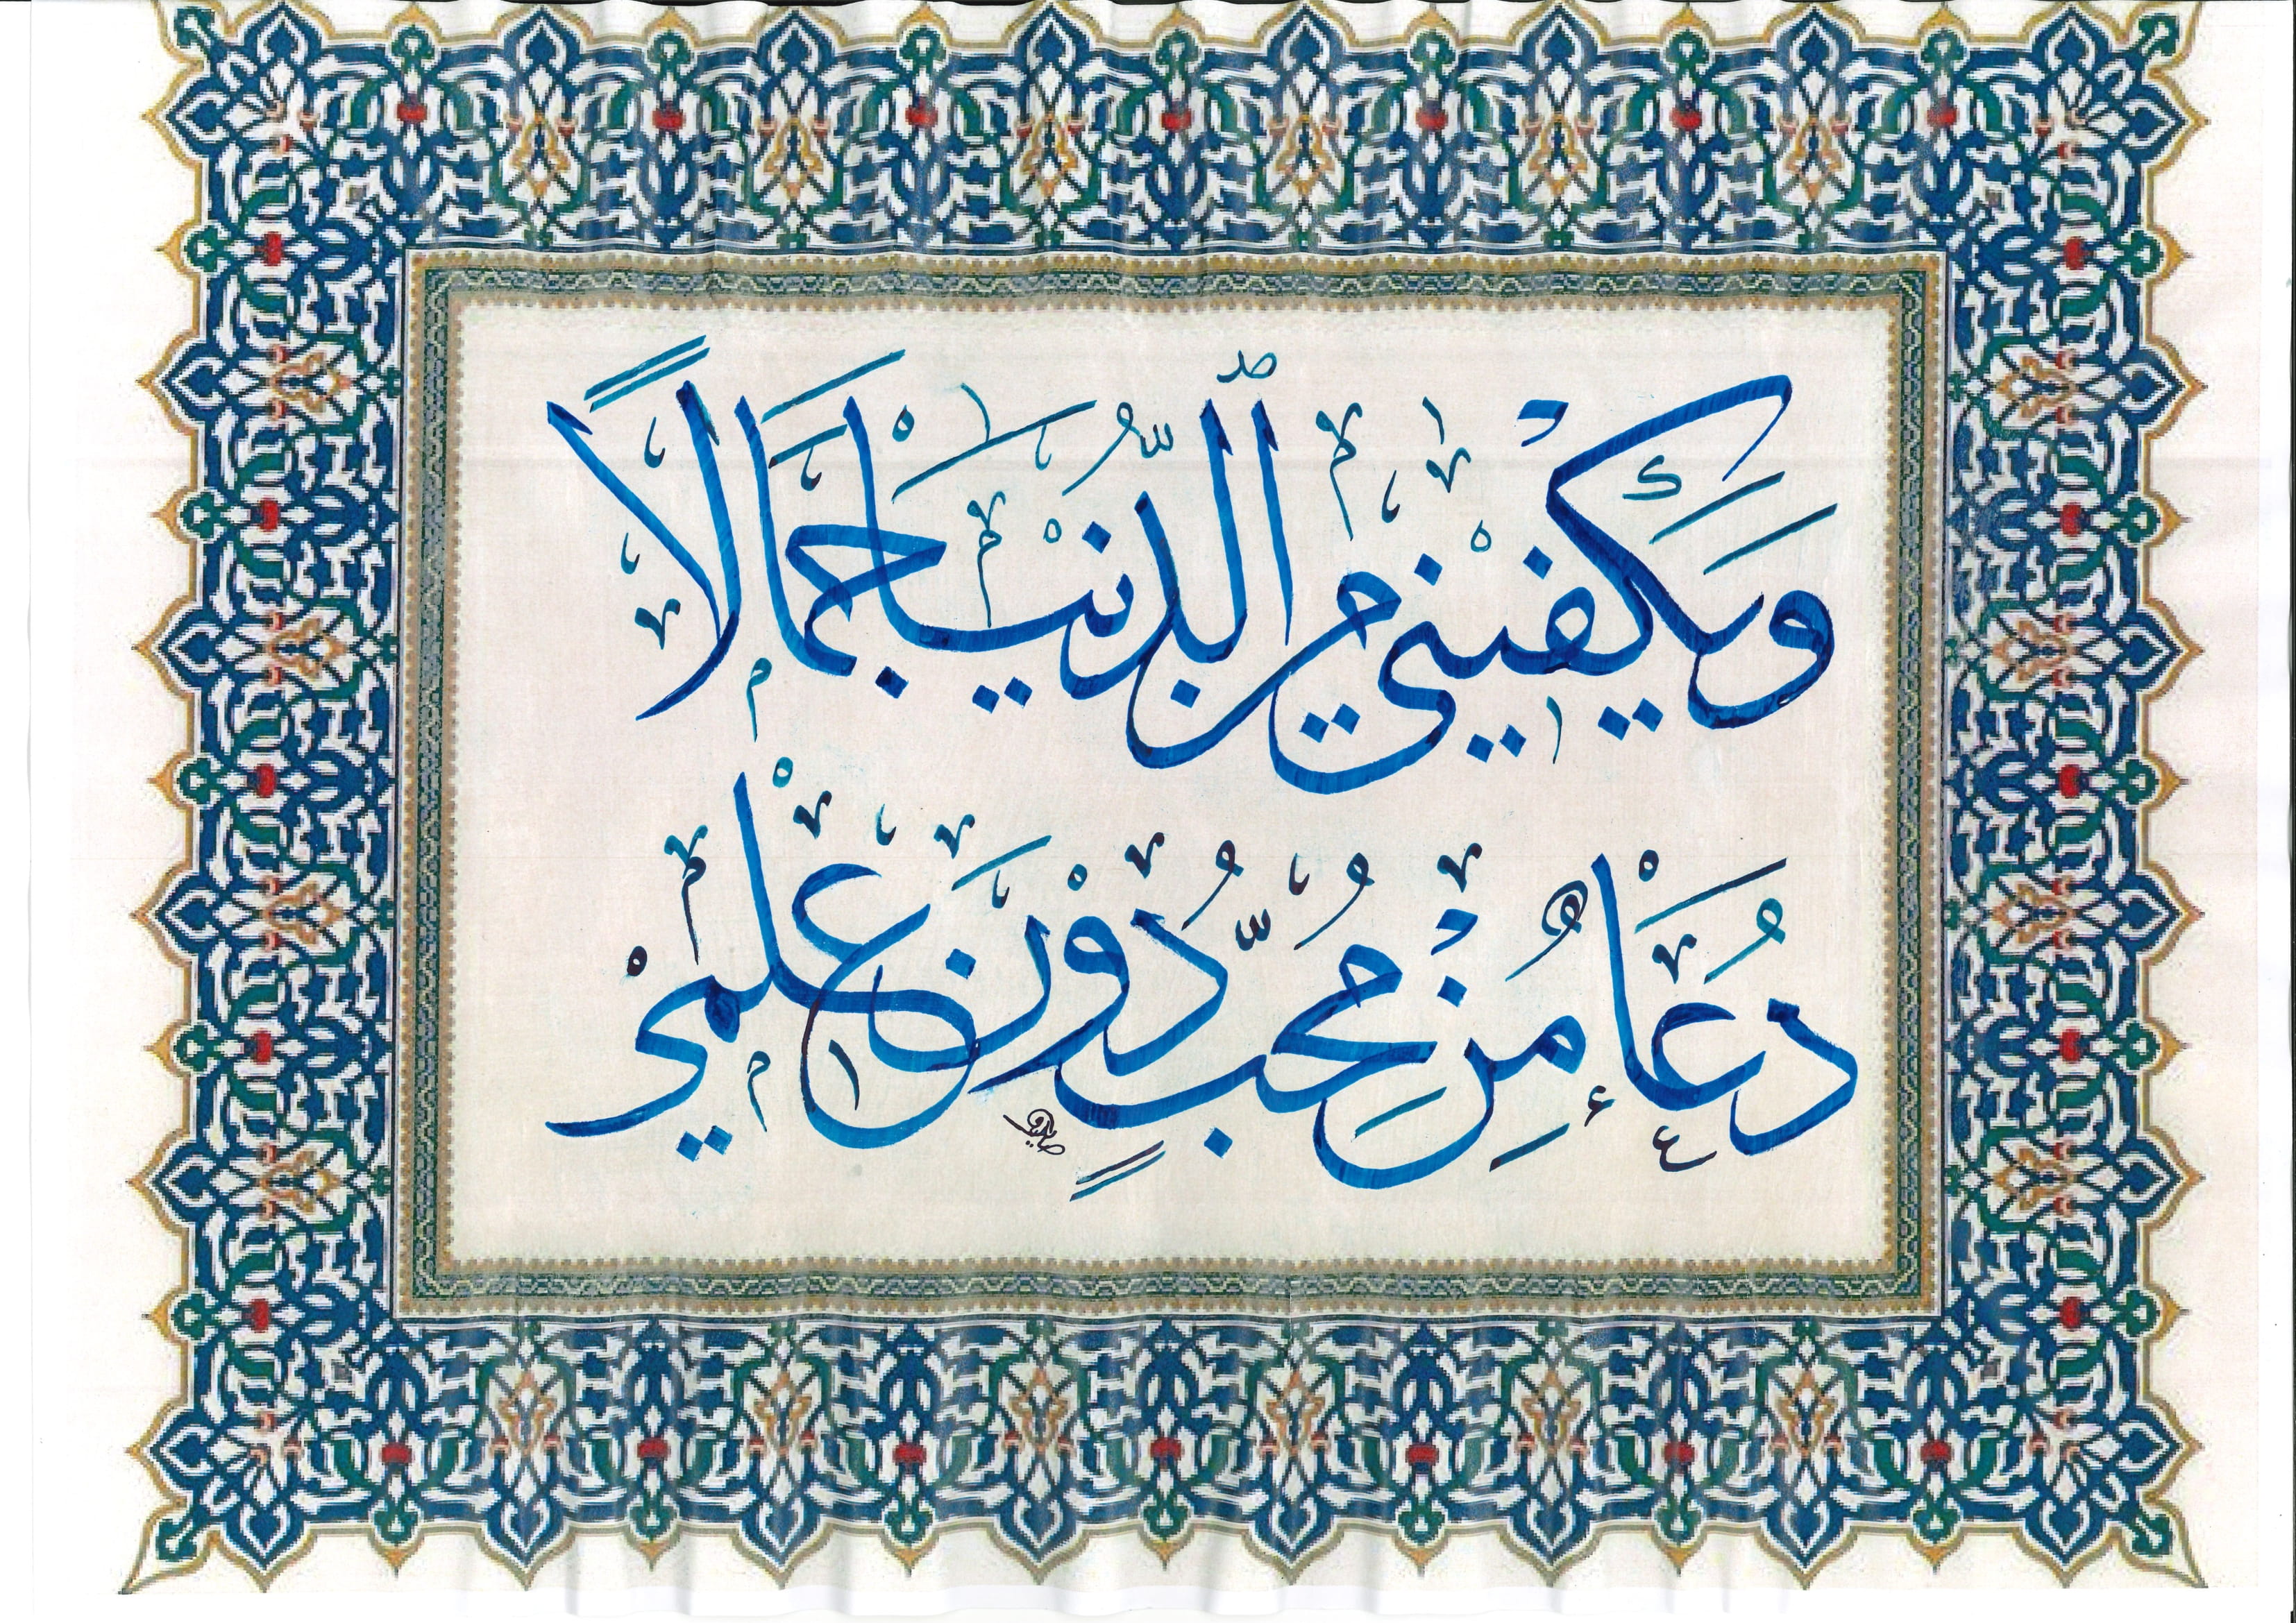 وَيَكفيني من ٱلدُّنْيَا جَمَالاً
دُعَاْء مِنْ مُحِبٍّ دُوْنَ علْميْ